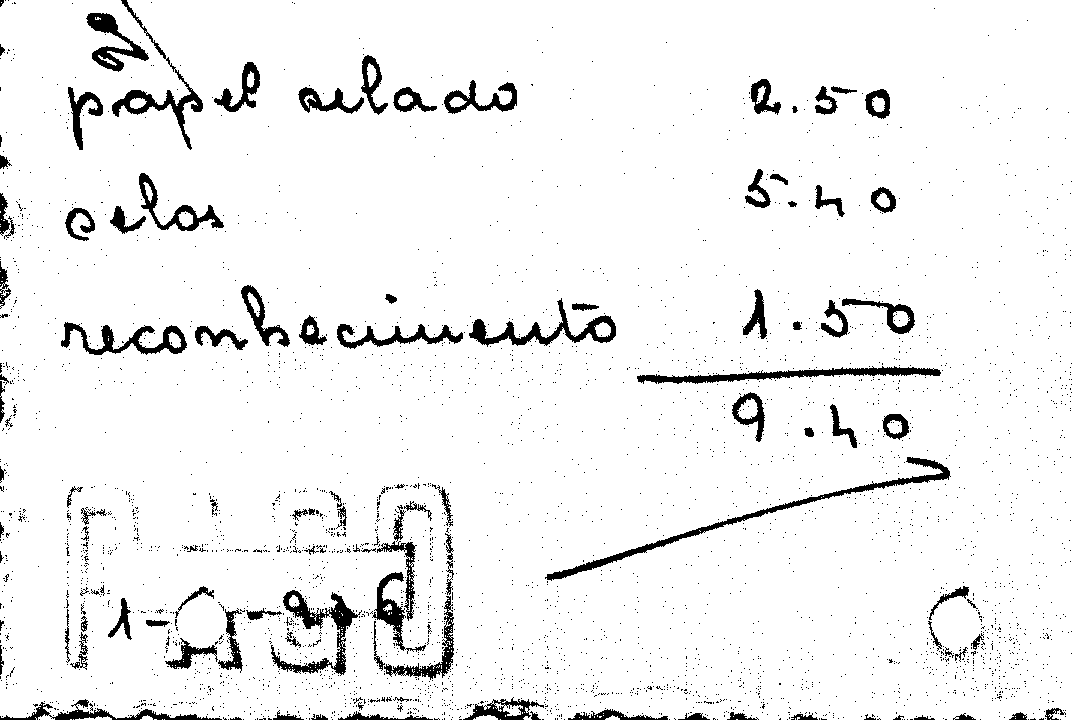 papel selado 2.50
selos 5.40
reconhecimento 1.50
9.40
PAGO